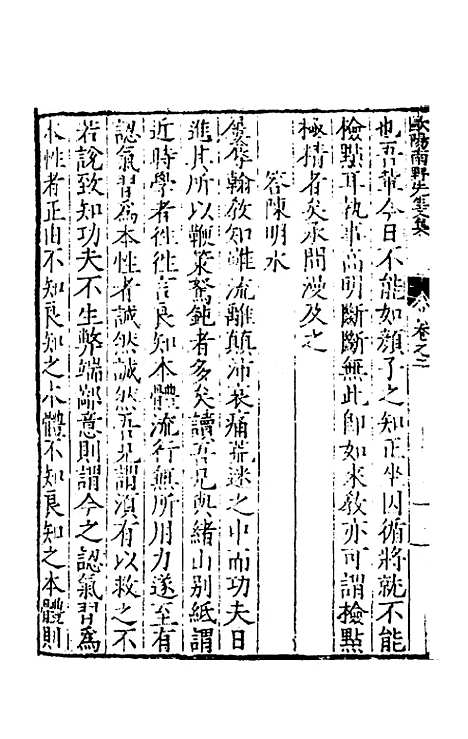 歐陽南野先生文集 卷之二
也吾輩今日不能如顏子之知正坐因循將就不能
檢點耳執事高明斷斷無此卽如來敎亦可謂檢點
極精者矣承問漫及之
答陳明水
辱翰敎知雖流離顛沛哀痛荒迷之中而功夫日
進其所以鞭策駑鈍者多矣讀吾兄與緒山別紙謂
近時學者徃徃言良知本體流行無所用力遂至有
認氣習爲本性者誠然誠然吾兄謂須有以救之不
若說致知功夫不生弊端鄙意則謂今之認氣習爲
本性者正由不知良知之本體不知良知之本體則